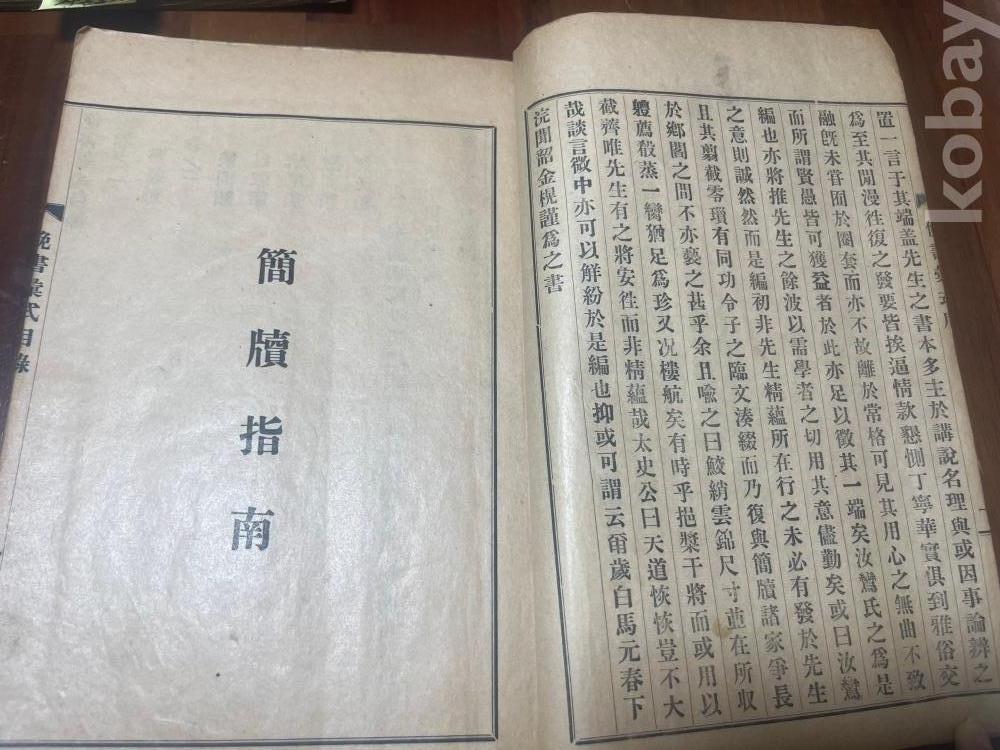 置一言于其端盖先生之書本多主於講說名理與或因事論辨之
爲至其閒漫徃復之發要皆挨逼情款懇惻丁寧華實俱到雅俗交
融旣未甞囿於圈套而亦不故離於常格可見其用心之無曲不致
而所謂賢愚皆可獲益者於此亦足以徵其一端矣汝鸞氏之爲是
編也亦將推先生之餘波以需學者之切用其意儘勤矣或曰汝鸞
之意則誠然然而是編初非先生精蘊所在行之未必有發於先生
且其翦截零瑣有同功令子之臨文湊綴而乃復與簡牘諸家爭長
於鄕閭之間不亦褻之甚乎余且喩之曰鮫綃雲錦尺寸並在所取
軆薦殽蒸一臠猶足爲珍又况樓航矣有時乎挹槳干將而或用以
截薺唯先生有之將安徃而非精蘊哉太史公曰天道恢恢豈不大
哉談言微中亦可以解紛於是編也抑或可謂云爾歲白馬元春下
浣聞韶金榥謹爲之書
簡牘指南
俛書彙式目錄
kobay